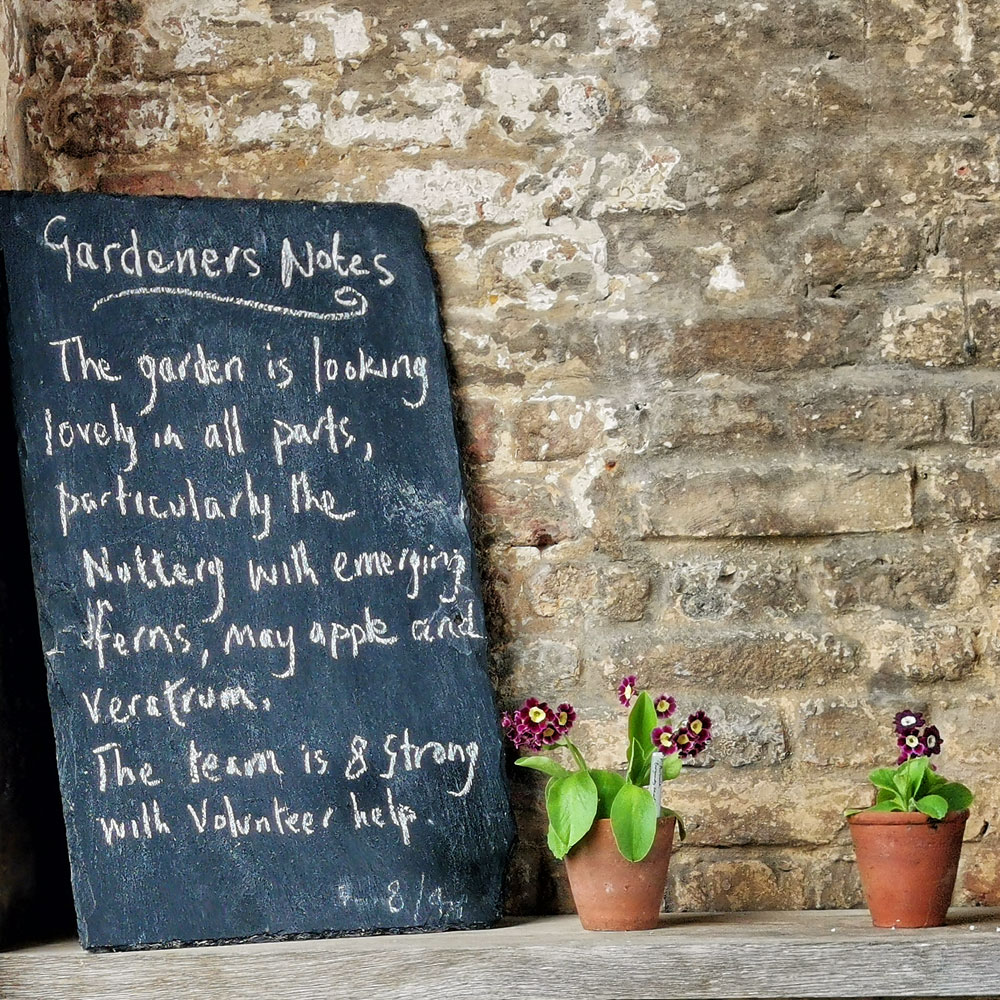 Gardeners Notes
The garden is looking
lovely in all parts,
particularly the
Nuttery with emerging
ferns, may apple and
veratrum.
The team is 8 Strong
with Volunteer help.
8/4